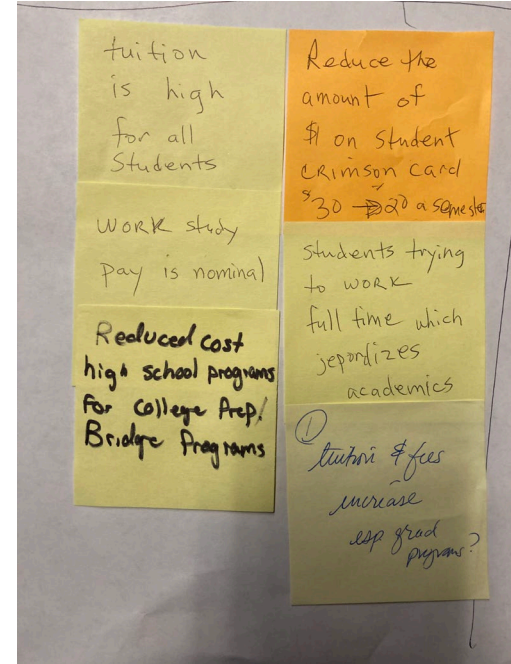 tuition
is high
for all
Students
WORK study
pay is nominal
Reduced cost
high school programs
For College Prep/
Bridge Programs
Reduce the
amount of
$ on student
CRimson card
$30 → 20 a semester
students trying
to work
full time which
jepordizes
academics
1
tuition & fees
increase
esp grad
programs?